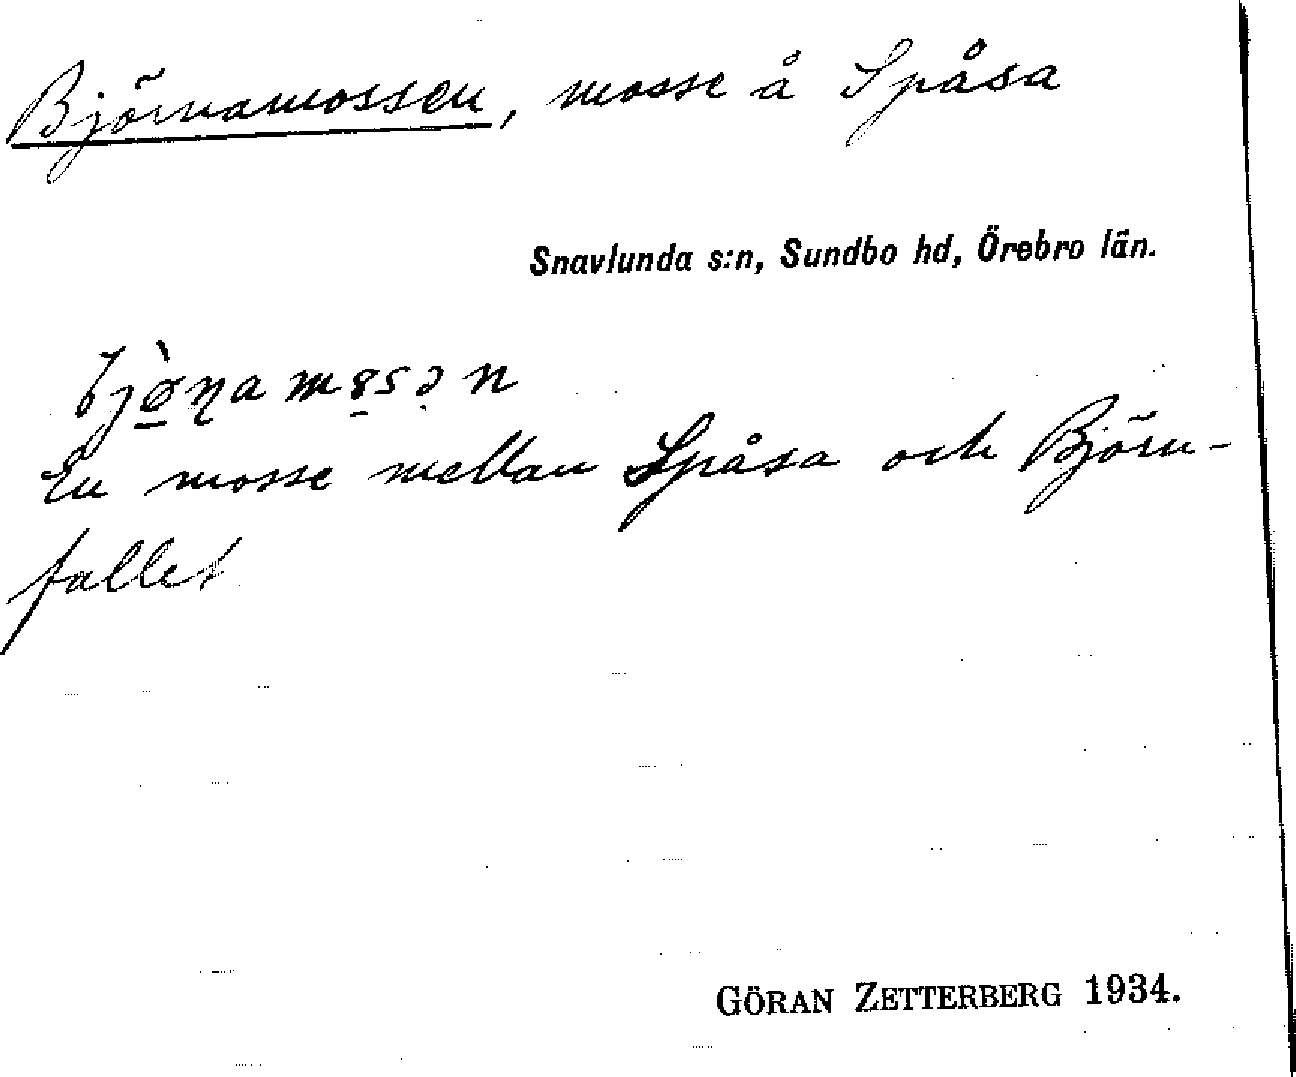 Björnamossen, mosse å Spåsa
Snavlunda s:n, Sundbo hd, Örebro län.
bjø̠̀ɳa mo̠sən
En mosse mellan Spåsa och Björn-
fallet
GÖRAN ZETTERBERG 1934.